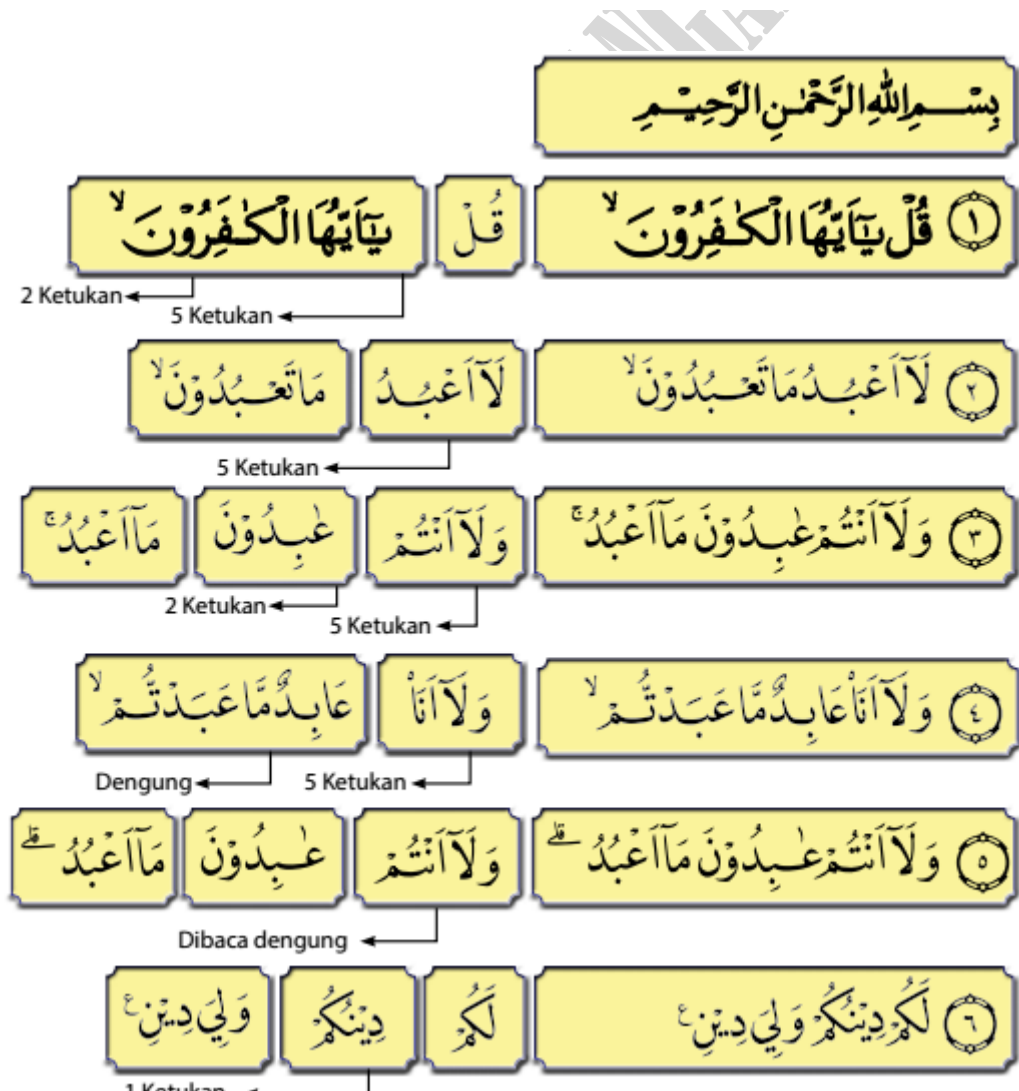 بِسْـــمِ اللّٰهِ الرَّحْمٰنِ الرَّحِيْـمِ
١ قُلْ يٰٓاَيُّهَا الْكٰفِرُوْنَ ۙ قُلْ يٰٓاَيُّهَا الْكٰفِرُوْنَ ۙ
2 Ketukan
5 Ketukan
٢ لَآ اَعْبُدُ مَا تَعْبُدُوْنَ ۙ لَآ اَعْبُدُ مَا تَعْبُدُوْنَ ۙ
5 Ketukan
٣ وَلَآ اَنْتُمْ عٰبِدُوْنَ مَآ اَعْبُدُ ۚ وَلَآ اَنْتُمْ عٰبِدُوْنَ مَآ اَعْبُدُ ۚ
2 Ketukan
5 Ketukan
٤ وَلَآ اَنَا۠ عَابِدٌ مَّا عَبَدْتُّمْ ۙ وَلَآ اَنَا۠ عَابِدٌ مَّا عَبَدْتُّمْ ۙ
Dengung 5 Ketukan
٥ وَلَآ اَنْتُمْ عٰبِدُوْنَ مَآ اَعْبُدُ ۗ وَلَآ اَنْتُمْ عٰبِدُوْنَ مَآ اَعْبُدُ ۗ
Dibaca dengung
٦ لَكُمْ دِيْنُكُمْ وَلِيَ دِيْنِ ࣖ لَكُمْ دِيْنُكُمْ وَلِيَ دِيْنِ ࣖ
1 Ketukan